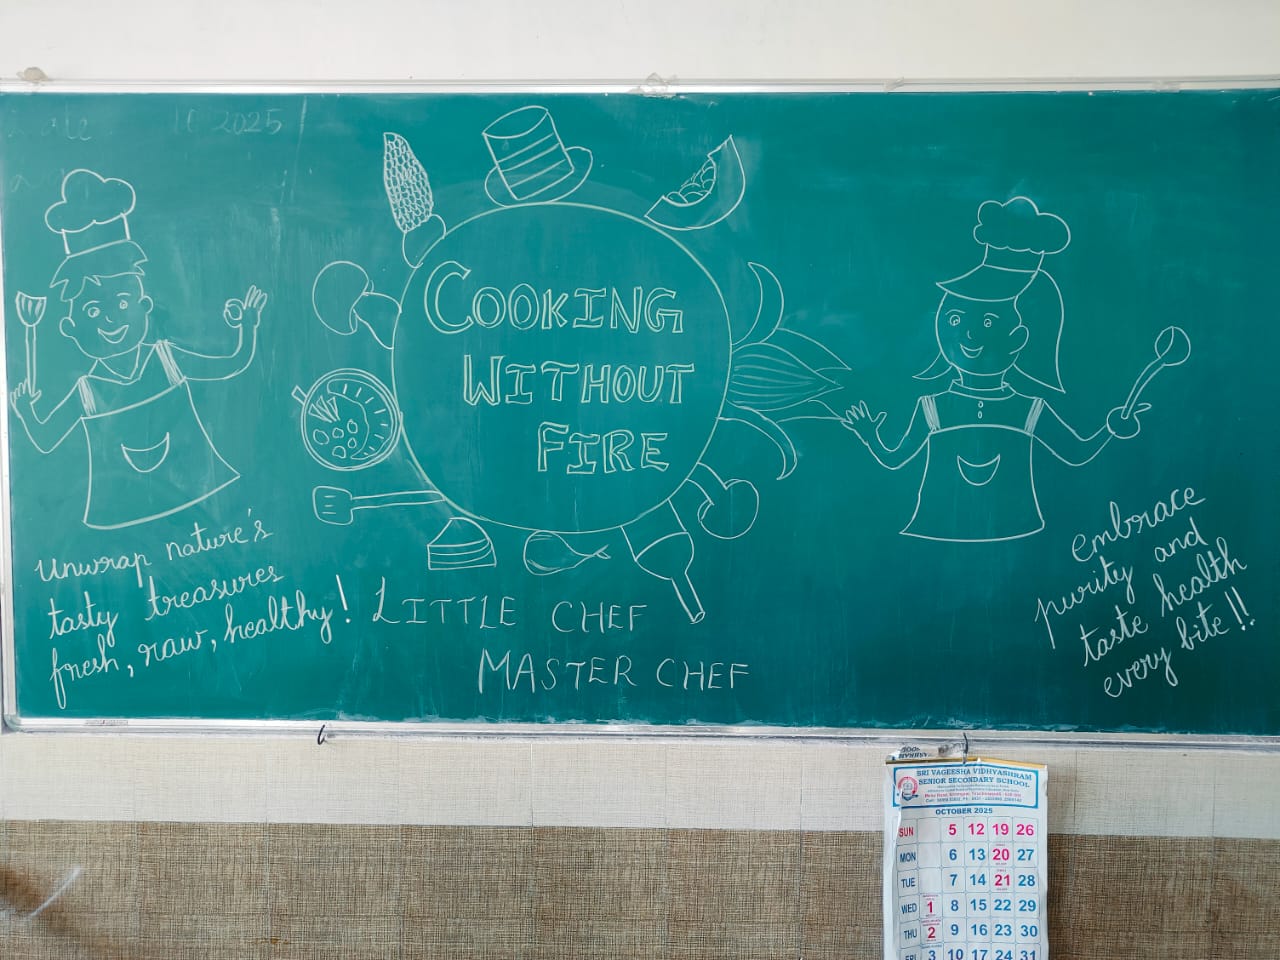 2025
COOKING
WITHOUT
FIRE
unwrap nature's
tasty treasures
fresh, raw, healthy!
LITTLE CHEF
MASTER CHEF
embrace
purity and
taste health
every bite!!
SRI VAGEESHA VIDHYASHRAM
SENIOR SECONDARY SCHOOL
OCTOBER 2025
SUN 5 12 19 26
MON 6 13 20 27
TUE 7 14 21 28
WED 1 8 15 22 29
THU 2 9 16 23 30
FRI 3 10 17 24 31